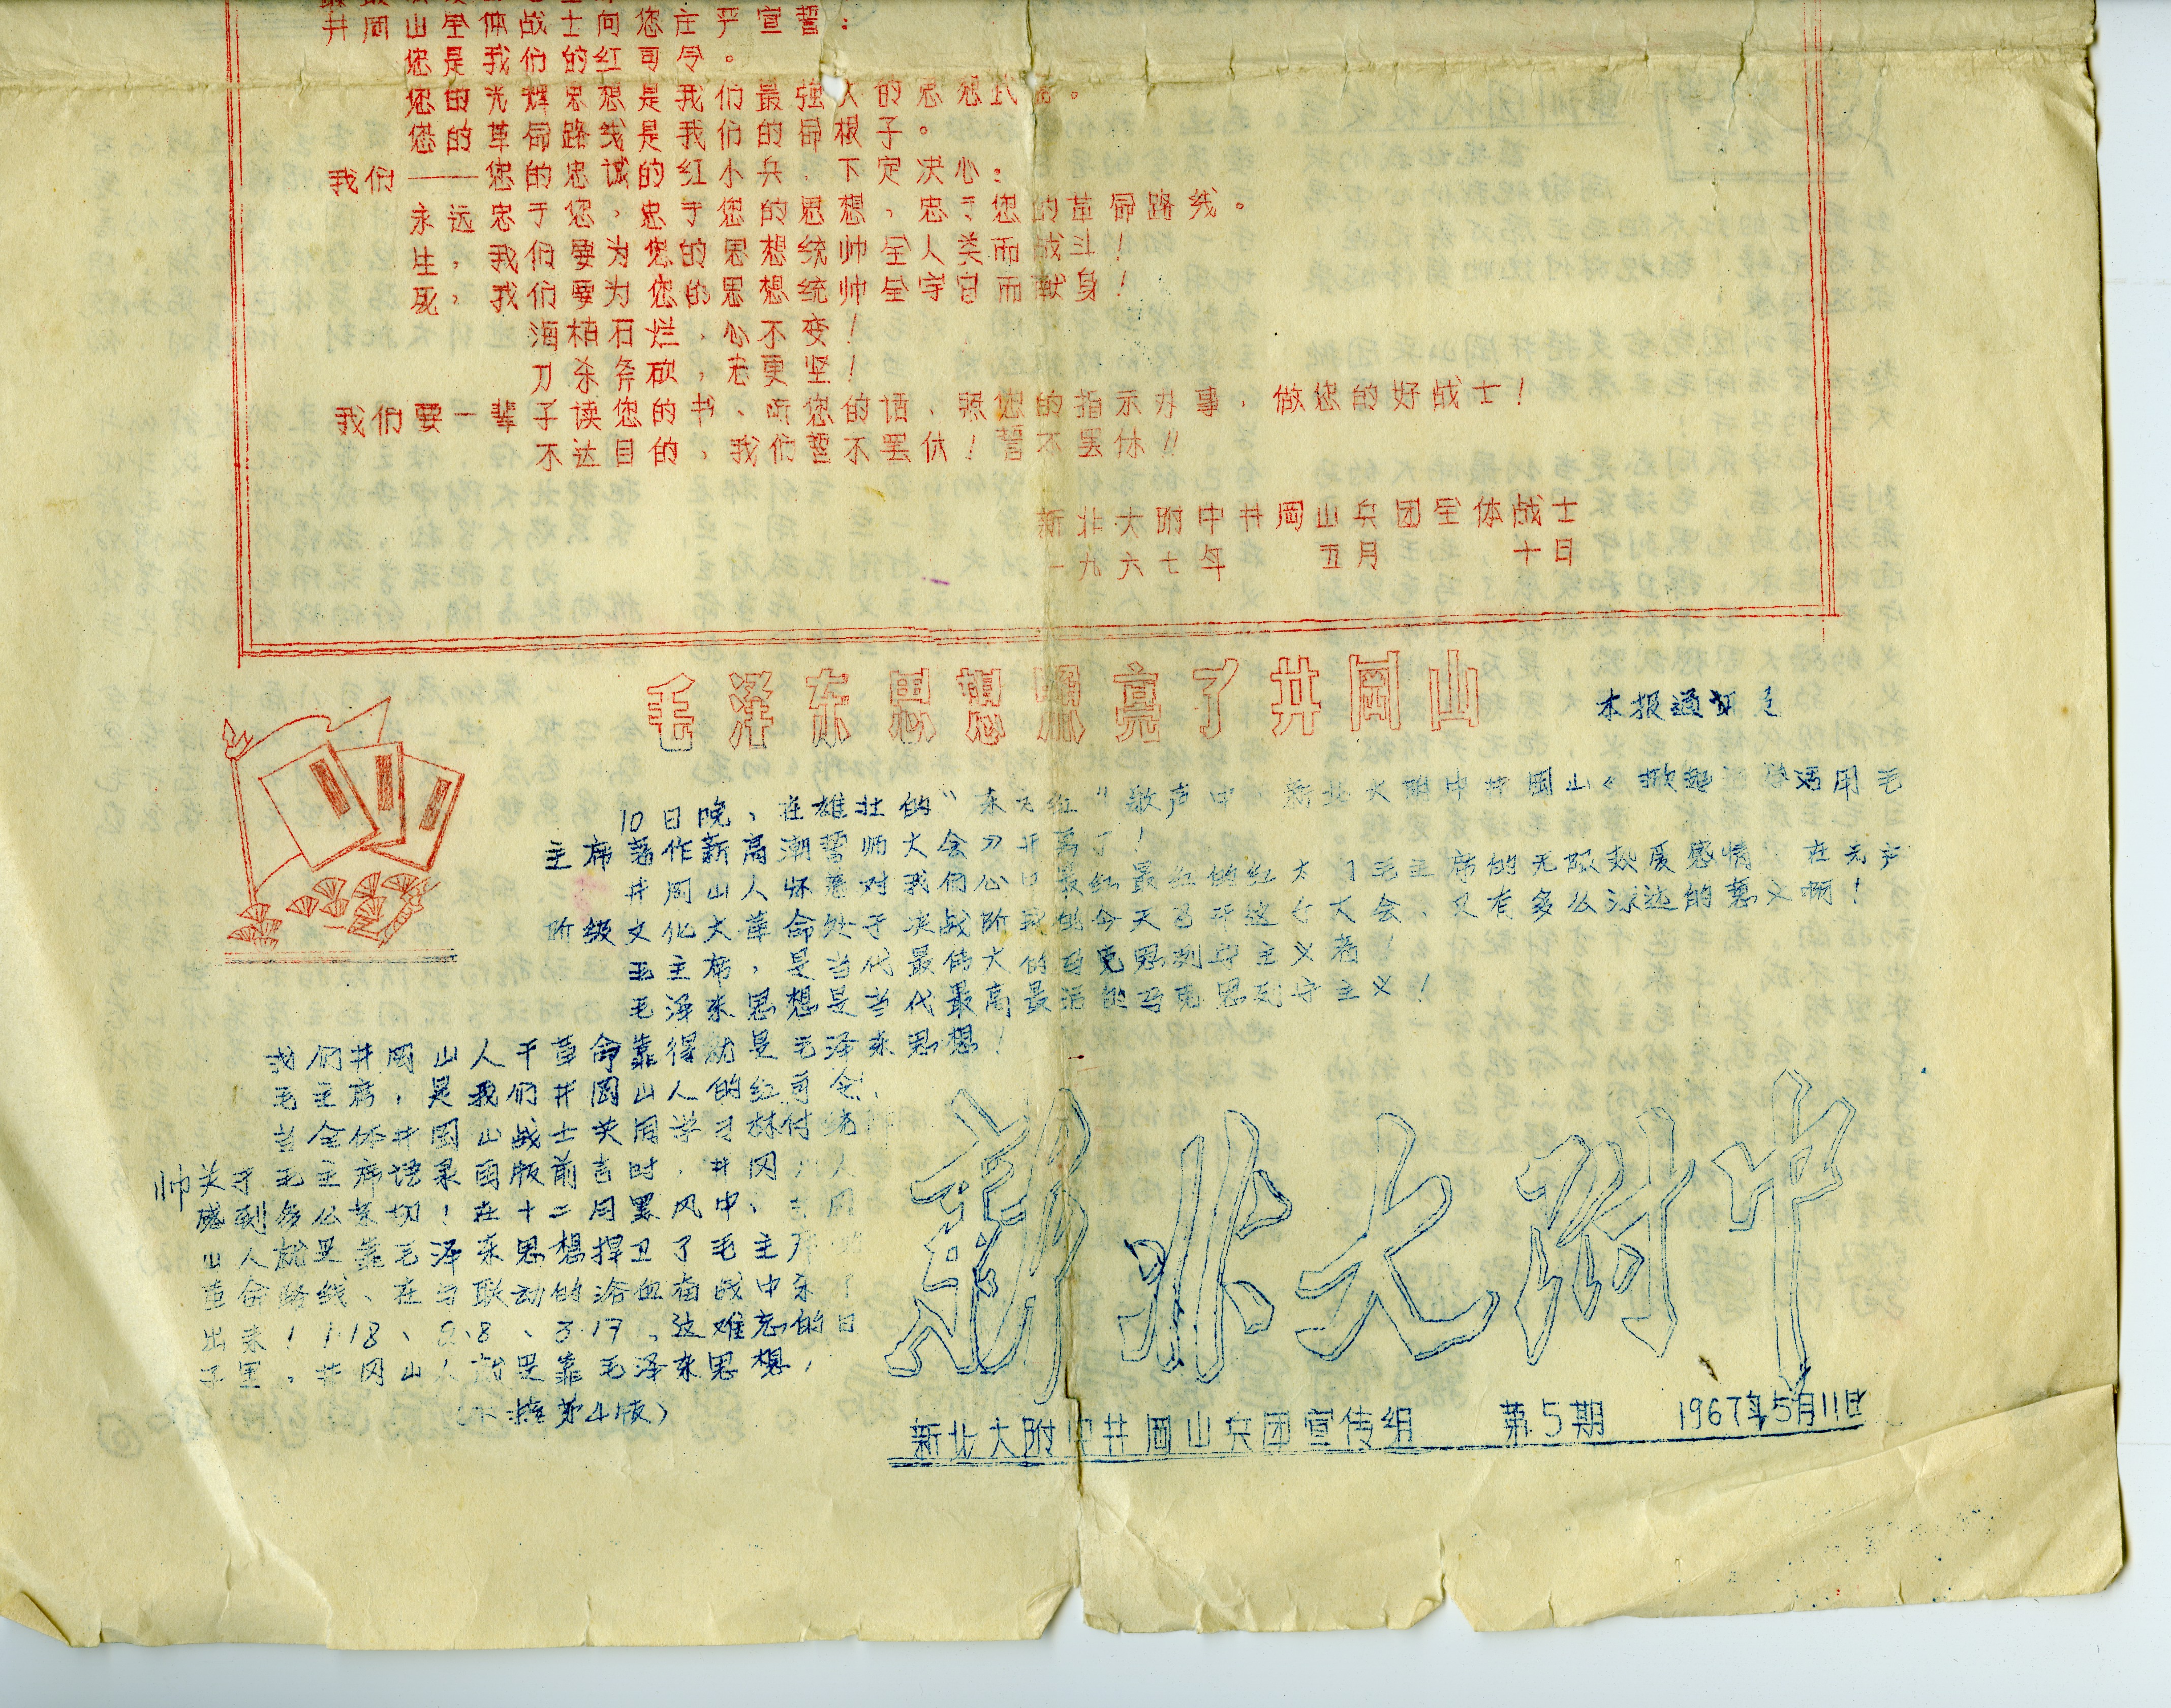 井冈山全体战士向您庄严宣誓：
您是我们的红司令。
您的光辉思想是我们最强大的思想武器。
您的革命路线是我们的命根子。
我们——您的忠诚的红小兵，下定决心：
永远忠于您，忠于您的思想，忠于您的革命路线。
生，我们要为您的思想统帅全人类而战斗！
死，我们要为您的思想统帅全宇宙而献身！
海枯石烂，心不变！
刀杀斧砍，志更坚！
我们要一辈子读您的书、听您的话、照您的指示办事，做您的好战士！
不达目的，我们誓不罢休！誓不罢休！！
新北大附中井冈山兵团全体战士
一九六七年 五月 十日
毛泽东思想照亮了井冈山
本报通讯
10日晚、在雄壮的“东方红”歌声中，新北大附中井冈山《掀起 学活用毛
主席著作新高潮誓师大会 开 了！
井冈山人怀着对我们心 最红最红的红太 毛主席的无限热爱感情 在无产
阶级文化大革命处于决战阶 今天召开这个大会、又有多么深远的意义啊！
毛主席，是当代最伟大的马克思列宁主义者！
毛泽东思想是当代最高最活的马克思列宁主义！
我们井冈山人干革命靠得就是毛泽东思想！
毛主席，是我们井冈山人的红司令，
当全体井冈山战士共同学习林付统
帅关于毛主席语录再版前言时，井冈 人
感到多么亲切！在十二月黑风中、井冈
山人就是靠毛泽东思想捍卫了毛主席
革命路线、在与联动的浴血奋战中杀了
出来！1·18、2·8、3·17，这难忘的日
子里，井冈山人就是靠毛泽东思想，
（下接第4版）
新北大附中
新北大附中井冈山兵团宣传组 第5期 1967年5月11日